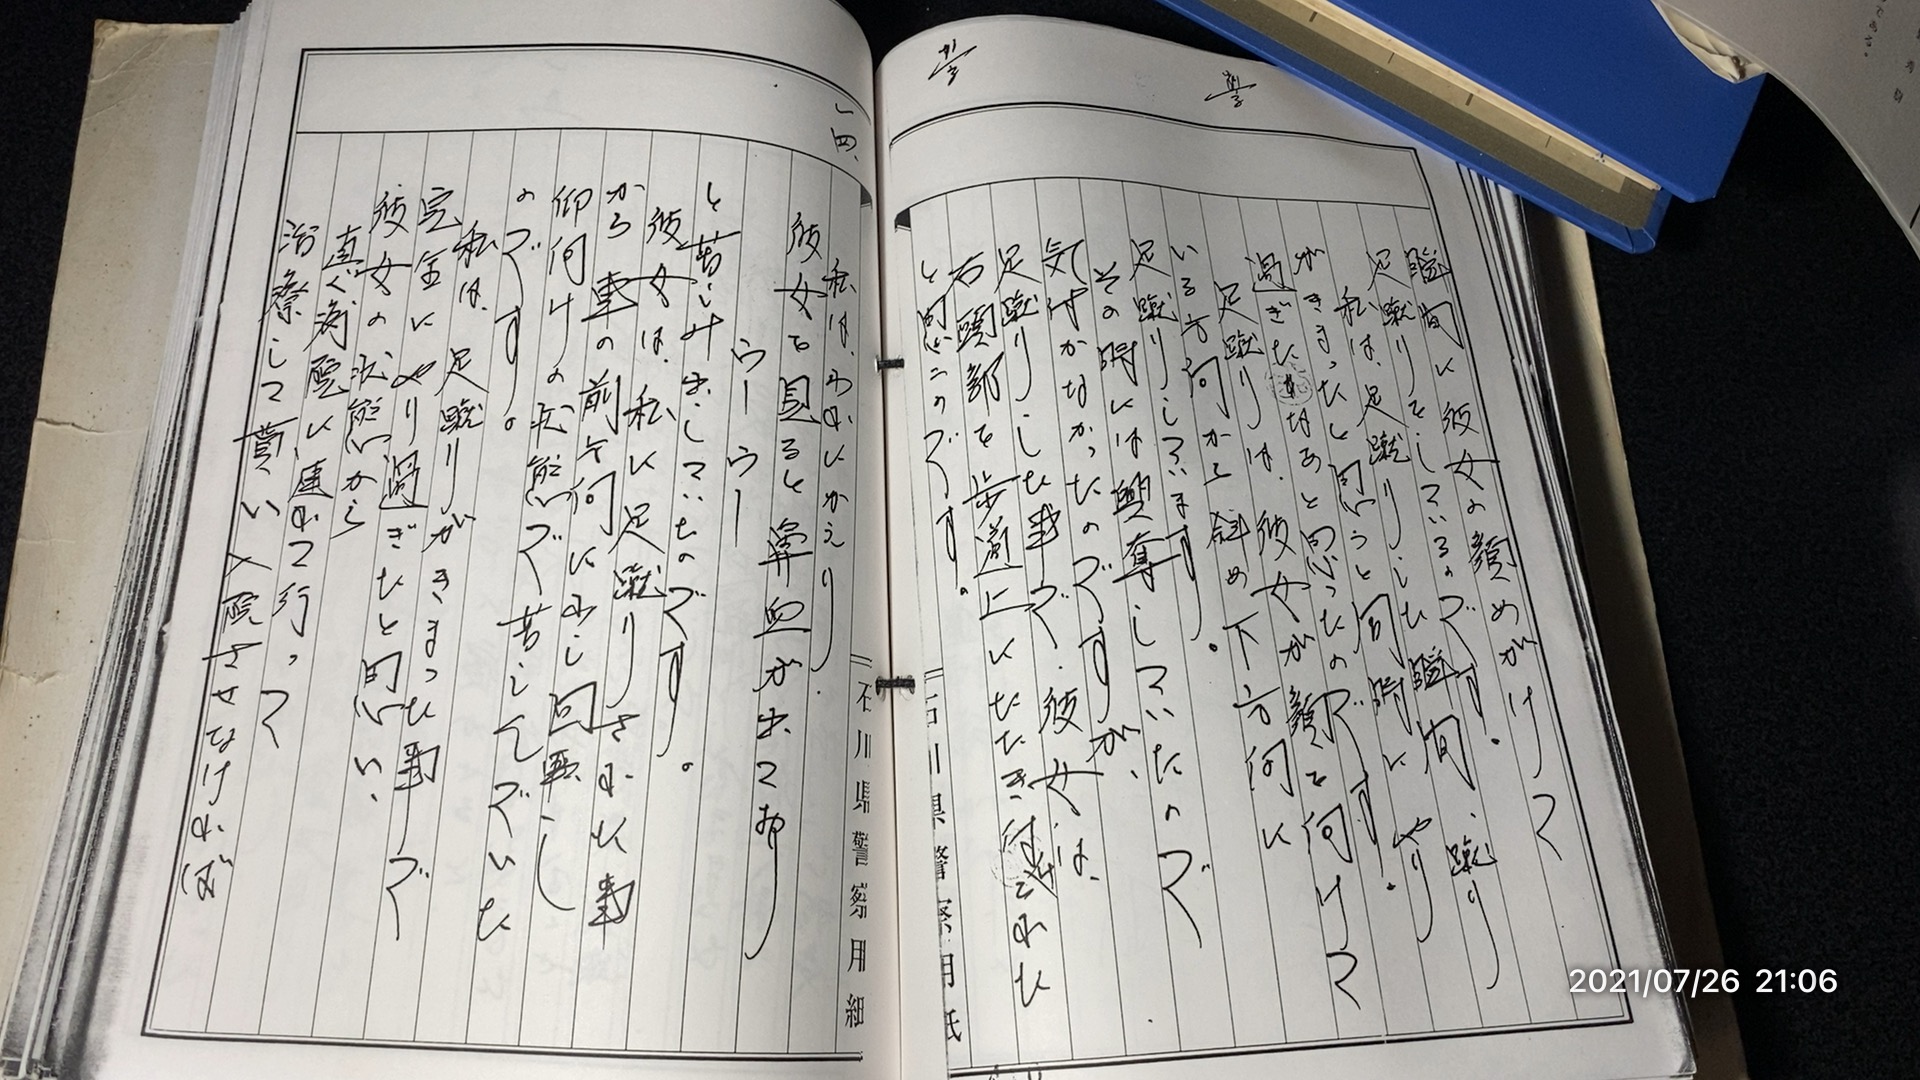 瞬間に彼女の顔めがけて
足蹴りをしているのです。
私は、足蹴りした瞬間、蹴り
がきまったと思うと同時にやり
過ぎたなあと思ったのです。
足蹴りは、彼女が顔を向けて
いる方向から斜め下方向に
足蹴りしています。
その時には興奮していたので
気付かなかったのですが、
足蹴りした事で、彼女は、
右頭部を歩道上にたたき付けられた
と思うのです。
一四、
私は、われにかえり
彼女を見ると鼻血が出ており
ウーウー
と苦しみ出していたのです。
彼女は、私に足蹴りされた事
から車の前を向にわし回転し
仰向けの状態で苦しんでいた
のです。
私は、足蹴りがきまった事で
完全にやり過ぎたと思い、
彼女の状態から
直ぐ病院に連れて行って
治療して貰い入院させなければ
石川県警察用紙
石川県警察用紙
2021/07/26 21:06